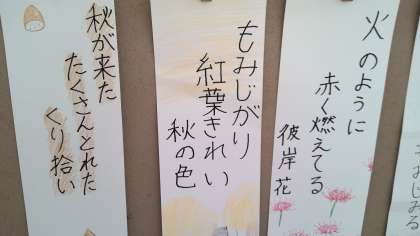 火のように
赤く燃えてる
彼岸花
もみじがり
紅葉きれい
秋の色
秋が来た
たくさんとれた
くり拾い